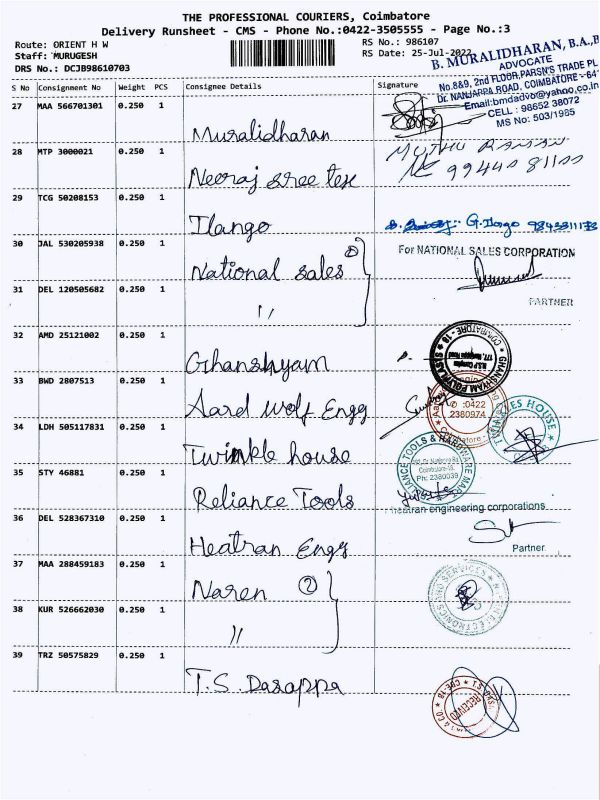 THE PROFESSIONAL COURIERS, Coimbatore
Delivery Runsheet - CMS - Phone No.:0422-3505555 - Page No.:3
Route: ORIENT H W
RS No.: 986107
Staff: MURUGESH
RS Date: 25-Jul-2022
DRS No.: DCJB98610703
B. MURALIDHARAN, B.A.,B
ADVOCATE
No.8&9, 2nd FLOOR,PARSN'S TRADE PL
Dr. NANJAPPA ROAD, COIMBATORE - 641
Email:bmdadvo@yahoo.co.in
CELL : 98652 38072
MS No: 503/1985
S No Consignment No Weight PCS Consignee Details Signature
27 MAA 566701301 0.250 1
Muralidharan
28 MTP 3000021 0.250 1
MUTHU RAMAN
Neeraj sree tex
99440 81100
29 TCG 50208153 0.250 1
Ilango
G. Ilango 9843311173
30 JAL 530205938 0.250 1
National sales ②
For NATIONAL SALES CORPORATION
31 DEL 120505682 0.250 1
"
PARTNER
32 AMD 25121002 0.250 1
Ghanshyam
GHANSHYAM POLYPLAST
COIMBATORE - 18
33 BWD 2807513 0.250 1
Aard wolf Engg
✆ :0422
2380974
Coimbatore
34 LDH 505117831 0.250 1
Twinkle house
HOUSE
35 STY 46881 0.250 1
Reliance Tools
RELIANCE TOOLS & HARDWARE MART
Coimbatore-18.
Ph: 2380039
36 DEL 528367310 0.250 1
Heatran Engg
heatran engineering corporations
Partner
37 MAA 288459183 0.250 1
Naren ②
38 KUR 526662030 0.250 1
"
39 TRZ 50575829 0.250 1
T.S. Dasappa
RECEIVED
CBE-18